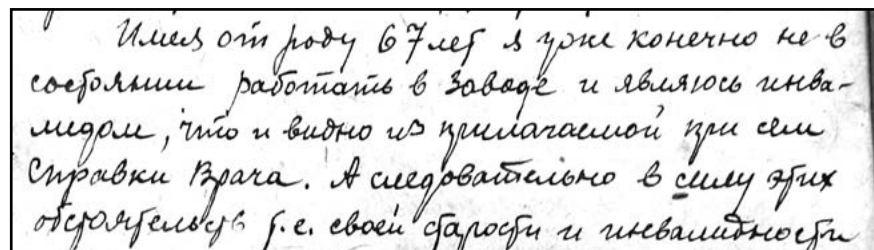 Имея от роду 67 лет я уже конечно не в
состоянии работать в Заводе и являюсь инва-
лидом, что и видно из прилагаемой при сем
справки Врача. А следовательно в силу этих
обстоятельств т.е. своей старости и инвалидности